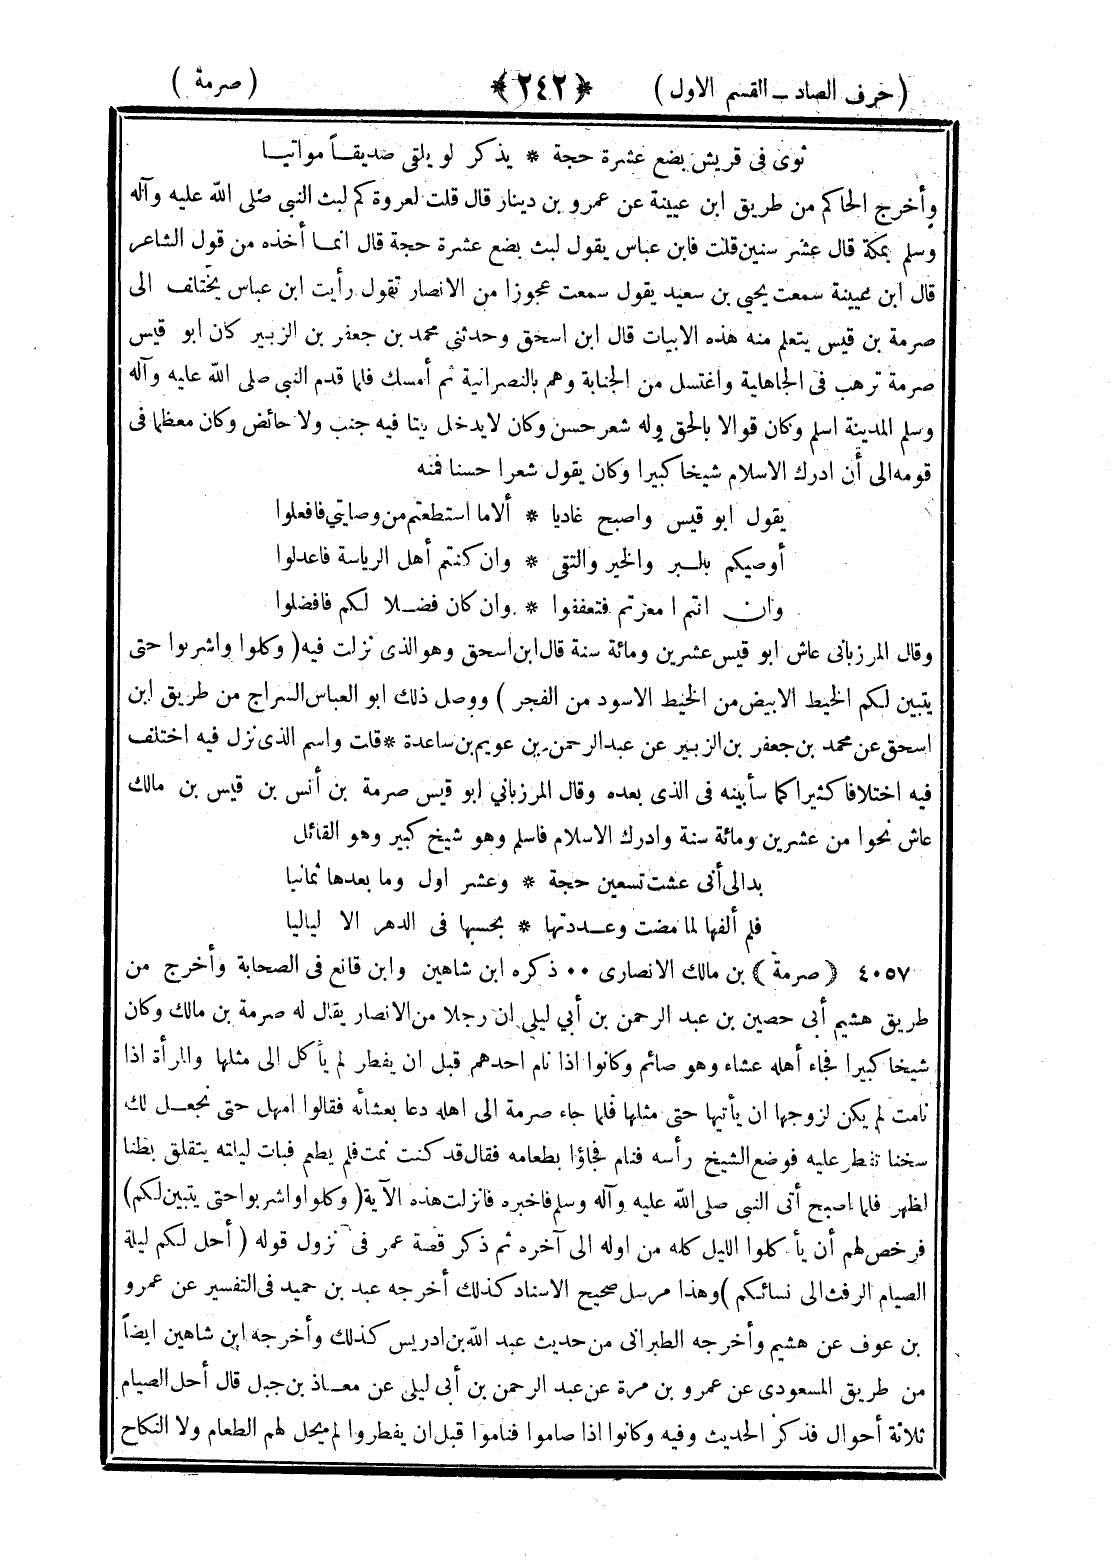 ( حرف الصاد ــ القسم الاول ) ﴿٢٤٢﴾ ( صرمة )
ثوى فى قريش بضع عشرة حجة * يذكر لو يلقى صديقــاً مواتيــا
وأخرج الحاكم من طريق ابن عيينة عن عمرو بن دينار قال قلت لعروة كم لبث النبى صلى الله عليه وآله
وسلم بمكة قال عشر سنين قلت فابن عباس يقول لبث بضع عشرة حجة قال انمــا أخذه من قول الشاعر
قال ابن عيينة سمعت يحيى بن سعيد يقول سمعت عجوزا من الانصار تقول رأيت ابن عباس يختلف الى
صرمة بن قيس يتعلم منه هذه الابيات قال ابن اسحق وحدثنى محمد بن جعفر بن الزبير كان ابو قيس
صرمة ترهب فى الجاهلية واغتسل من الجنابة وهم بالنصرانية ثم أمسك فلما قدم النبى صلى الله عليه وآله
وسلم المدينة اسلم وكان قوالا بالحق وله شعر حسن وكان لايدخل بيتا فيه جنب ولا حائض وكان معظما فى
قومه الى أن ادرك الاسلام شيخا كبيرا وكان يقول شعرا حسنا فمنه
يقول ابو قيس واصبح غاديا * ألاما استطعتم من وصاتي فافعلوا
أوصيكم بالــبر والخير والتقى * وان كنتم أهل الرياسة فاعدلوا
وان انتم امعزتم فتعففوا * وان كان فضــلا لكم فافضلوا
وقال المرزبانى عاش ابو قيس عشرين ومائة سنة قال ابن اسحق وهو الذى نزلت فيه ( وكلوا واشربوا حتى
يتبين لكم الخيط الابيض من الخيط الاسود من الفجر ) ووصل ذلك ابو العباس السراج من طريق ابن
اسحق عن محمد بن جعفر بن الزبير عن عبد الرحمن بن عويم بن ساعدة * قلت واسم الذى نزل فيه اختلف
فيه اختلافا كثيرا كما سأبينه فى الذى بعده وقال المرزباني ابو قيس صرمة بن أنس بن قيس بن مالك
عاش نحوا من عشرين ومائة سنة وادرك الاسلام فاسلم وهو شيخ كبير وهو القائل
بدالى أنى عشت تسعين حجة * وعشر اول وما بعدها ثمانيا
فلم ألفها لما مضت وعــددتها * بحسبها فى الدهر الا لياليا
٤٠٥٧ ﴿ صرمة ﴾ بن مالك الانصارى ٠٠ ذكره ابن شاهين وابن قانع فى الصحابة وأخرج من
طريق هشيم أبى حصين بن عبد الرحمن بن أبي ليلى ان رجلا من الانصار يقال له صرمة بن مالك وكان
شيخا كبيرا فجاء أهله عشاء وهو صائم وكانوا اذا نام احدهم قبل ان يفطر لم يأكل الى مثلها والمرأة اذا
نامت لم يكن لزوجها ان يأتيها حتى مثلها فلما جاء صرمة الى اهله دعا بعشائه فقالوا امهل حتى نجعــل لك
سخنا تفطر عليه فوضع الشيخ رأسه فنام فجاؤا بطعامه فقال قد كنت نمت فلم يطعم فبات ليلته يتقلق بطنا
لظهر فلما اصبح أتى النبى صلى الله عليه وآله وسلم فاخبره فانزلت هذه الآية ( وكلوا واشربوا حتى يتبين لكم )
فرخص لهم أن يأكلوا الليل كله من اوله الى آخره ثم ذكر قصة عمر فى نزول قوله ( أحل لكم ليلة
الصيام الرفث الى نسائكم ) وهذا مرسل صحيح الاسناد كذلك أخرجه عبد بن حميد فى التفسير عن عمرو
بن عوف عن هشيم وأخرجه الطبرانى من حديث عبد الله بن ادريس كذلك وأخرجه ابن شاهين ايضاً
من طريق المسعودى عن عمرو بن مرة عن عبد الرحمن بن أبى ليلى عن معــاذ بن جبل قال أحل الصيام
ثلاثة أحوال فذكر الحديث وفيه وكانوا اذا صاموا فناموا قبل ان يفطروا لم يحل لهم الطعام ولا النكاح